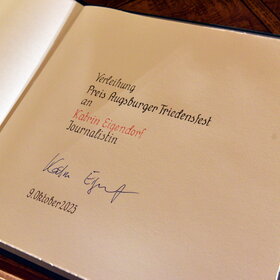 Verleihung
Preis Augsburger Friedensfest
an
Katrin Eigendorf
Journalistin
Katrin Eigendorf
9. Oktober 2025